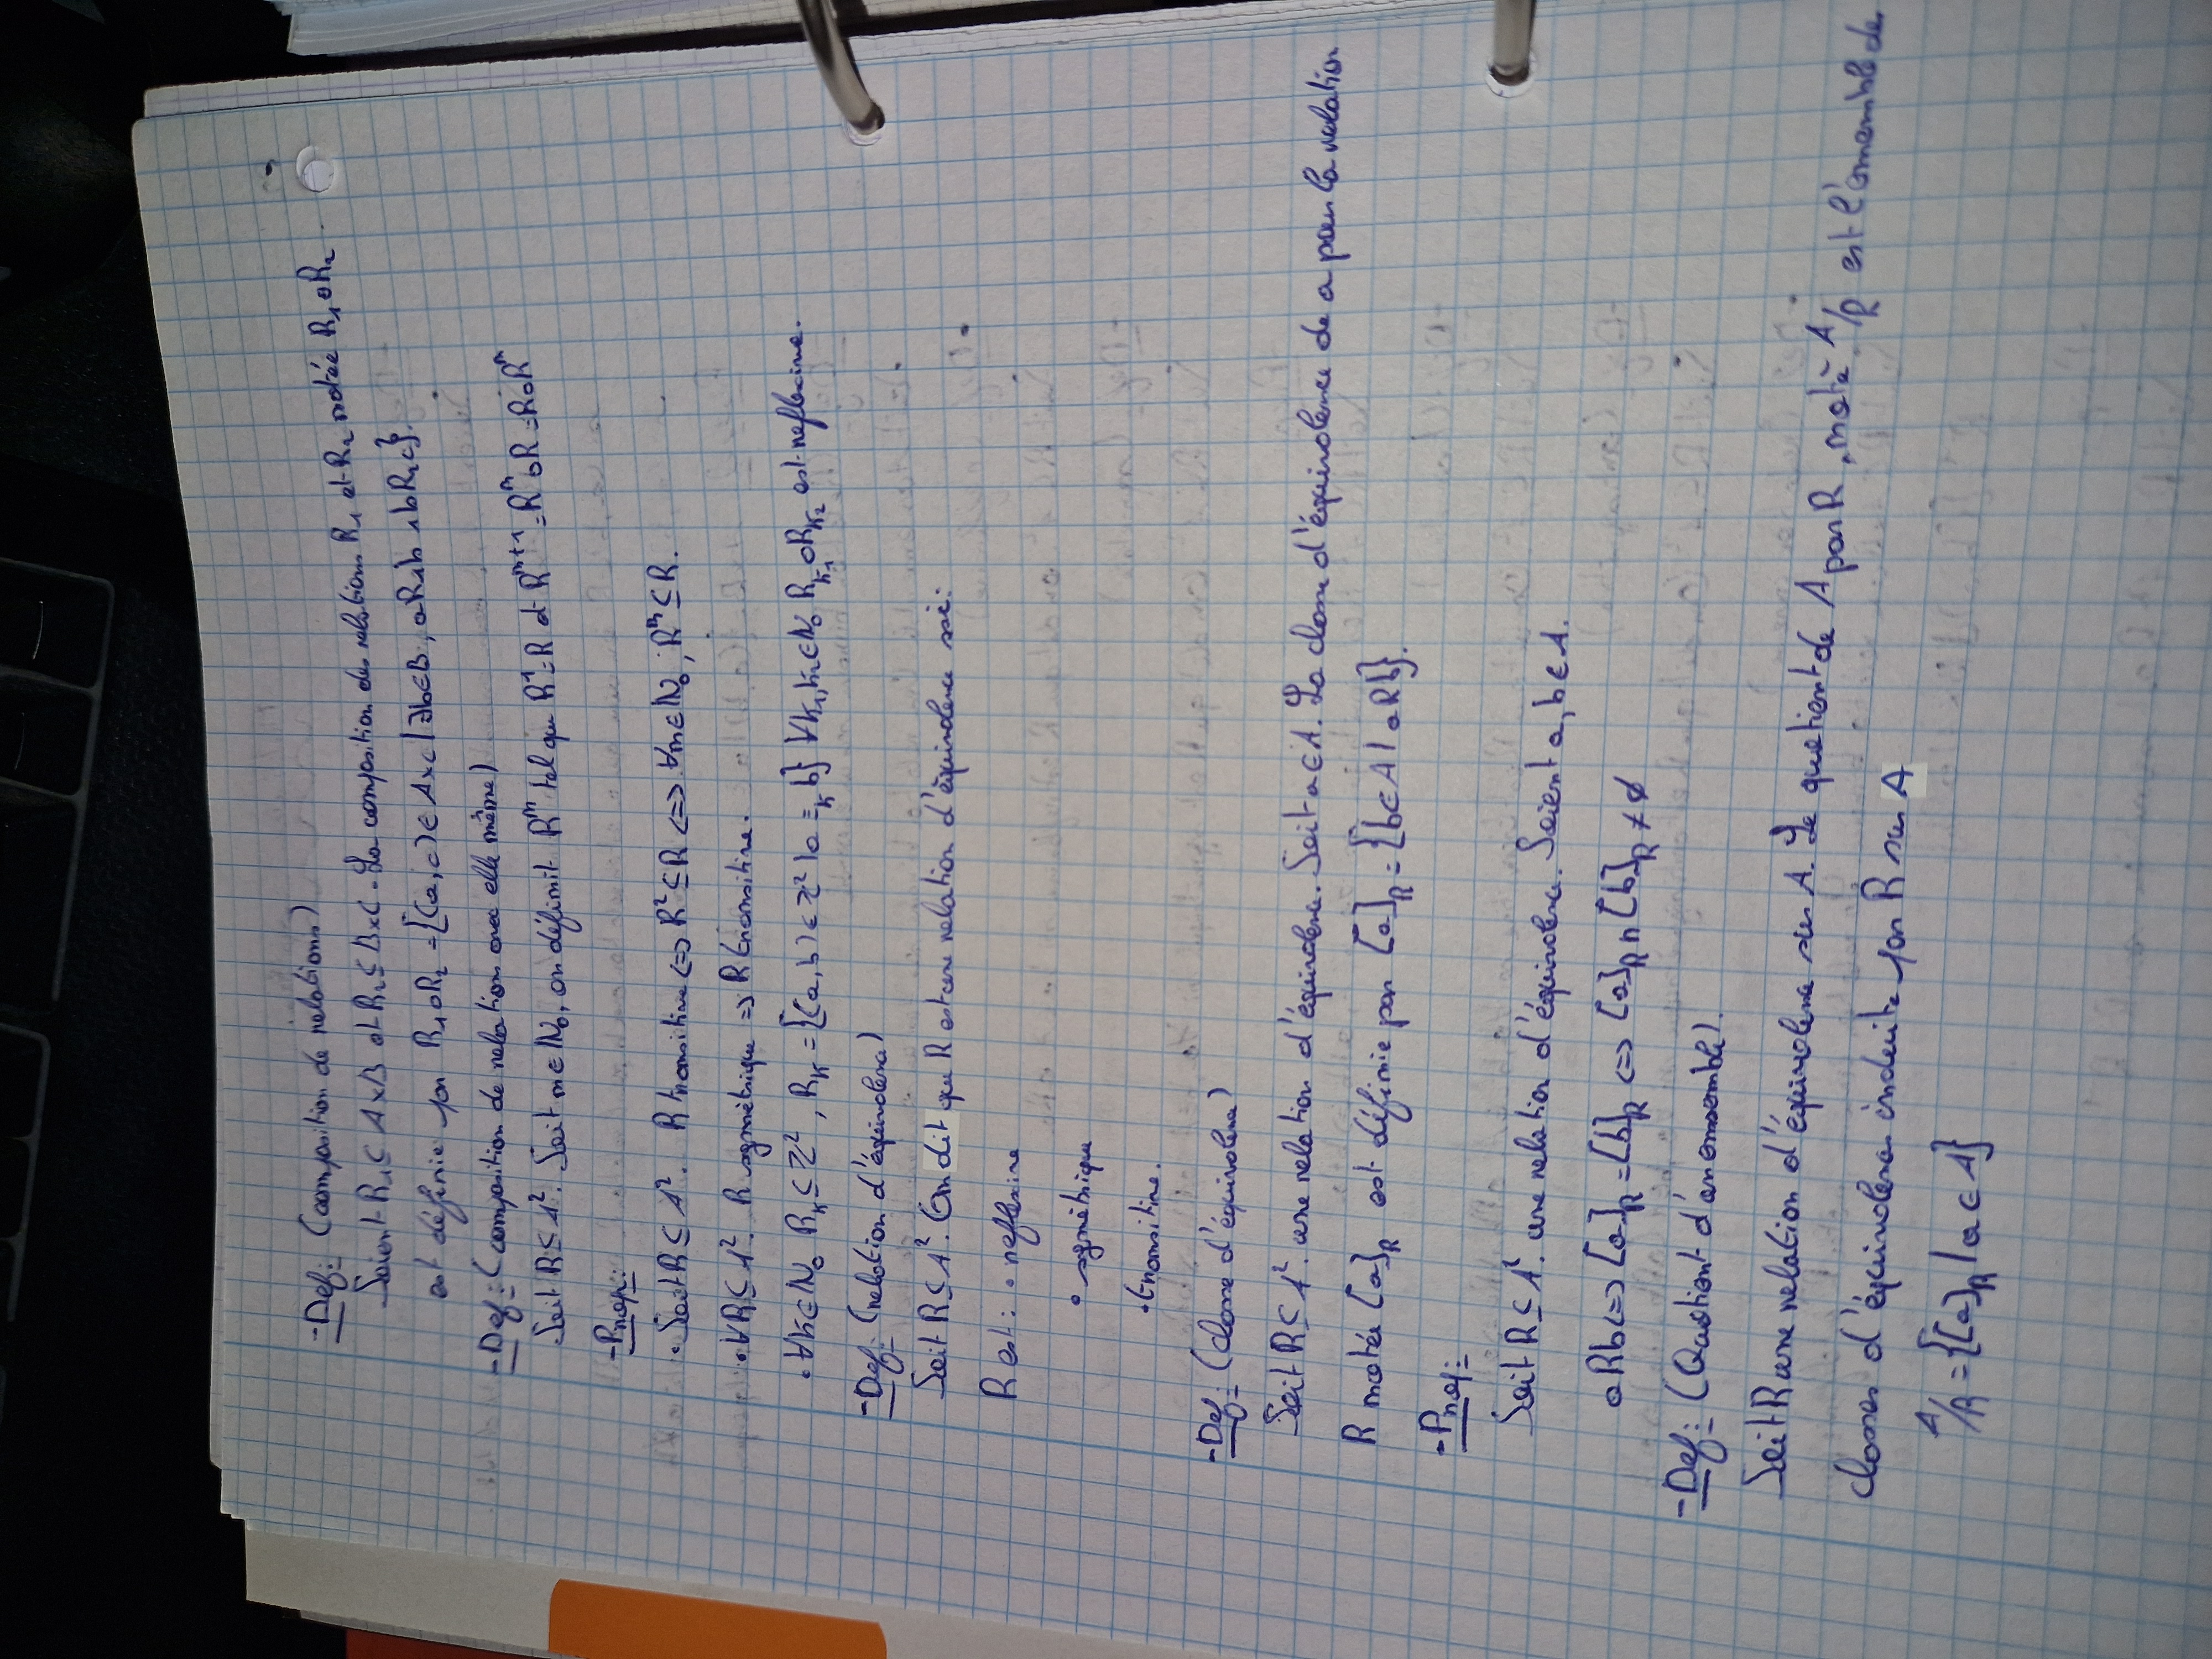 - Def: (composition de relations)
Soient R₁ ⊆ A×B et R₂ ⊆ B×C. La composition des relations R₁ et R₂ notée R₁∘R₂
est définie par R₁∘R₂ = {(a,c) ∈ A×C | ∃b∈B, aR₁b ∧ bR₂c}.
- Def: (composition de relations avec elle même)
Soit R ⊆ A². Soit n ∈ ℕ₀, on définit Rⁿ tel que R¹=R et Rⁿ⁺¹ = Rⁿ∘R = R∘Rⁿ
- Prop:
• Soit R ⊆ A². R transitive <=> R² ⊆ R <=> ∀n∈ℕ₀, Rⁿ ⊆ R.
• ∀R ⊆ A². R symétrique => R transitive.
• ∀k∈ℕ₀ Rₖ ⊆ ℤ², Rₖ = {(a,b) ∈ ℤ² | a ≡ₖ b} ∀k₁,k₂∈ℕ₀ Rₖ₁∘Rₖ₂ est reflexive.
- Def: (relation d'équivalence)
Soit R ⊆ A². On dit que R est une relation d'équivalence ssi:
R est: • reflexive
• symétrique
• transitive.
- Def: (classe d'équivalence)
Soit R ⊆ A². une relation d'équivalence. Soit a ∈ A. La classe d'équivalence de a pour la relation
R notée [a]_R est définie par [a]_R = {b∈A | aRb}.
- Prop:
Soit R ⊆ A². une relation d'équivalence. Soient a, b ∈ A.
aRb <=> [a]_R = [b]_R <=> [a]_R ∩ [b]_R ≠ ∅
- Def: (Quotient d'un ensemble).
Soit R une relation d'équivalence sur A. Le quotient de A par R, noté A/R est l'ensemble des
classes d'équivalences induite par R sur A
A/R = {[a]_R | a ∈ A}